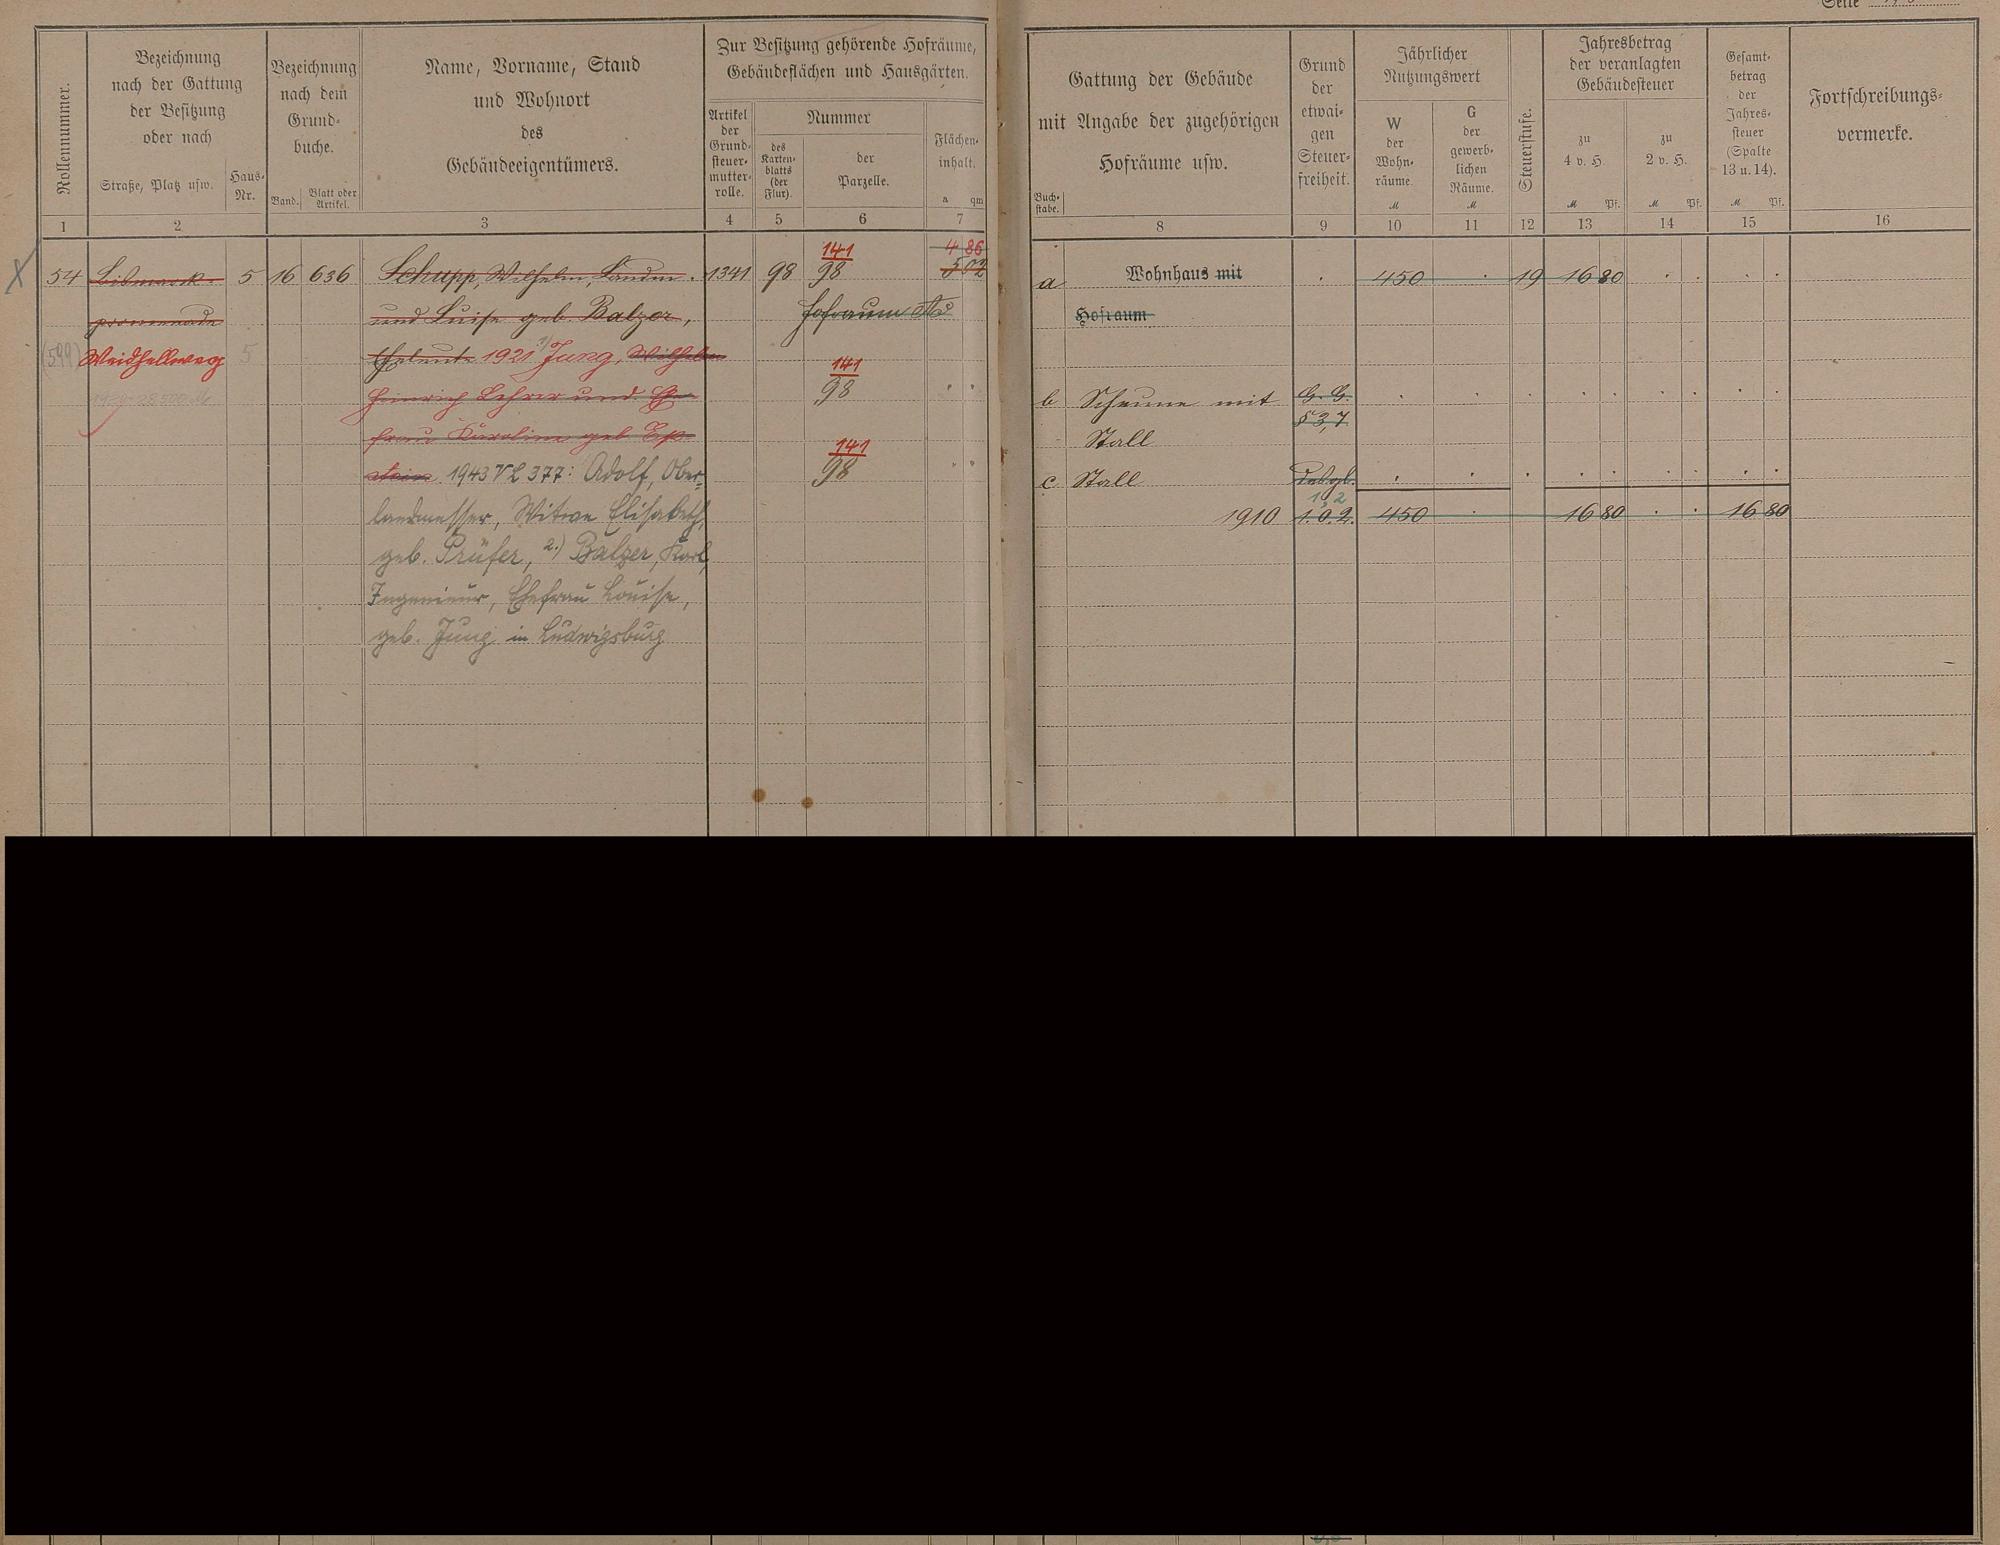 Seite
Rollennummer.
Bezeichnung
nach der Gattung
der Besitzung
oder nach
Straße, Platz usw.
Haus-
Nr.
Bezeichnung
nach dem
Grund-
buche.
Band.
Blatt oder
Artikel.
Name, Vorname, Stand
und Wohnort
des
Gebäudeeigentümers.
Zur Besitzung gehörende Hofräume,
Gebäudeflächen und Hausgärten.
Artikel
der
Grund-
steuer-
mutter-
rolle.
Nummer
des
Karten-
blatts
(der
Flur).
der
Parzelle.
Flächen-
inhalt.
a qm
Gattung der Gebäude
mit Angabe der zugehörigen
Hofräume usw.
Buch-
stabe.
Grund
der
etwai-
gen
Steuer-
freiheit.
Jährlicher
Nutzungswert
W
der
Wohn-
räume
M
G
der
gewerb-
lichen
Räume.
M
Steuerstufe.
Jahresbetrag
der veranlagten
Gebäudesteuer
zu
4 v. H.
M Pf.
zu
2 v. H.
M Pf.
Gesamt-
betrag
der
Jahres-
steuer
(Spalte
13 u. 14).
M Pf.
Fortschreibungs-
vermerke.
1 2 3 4 5 6 7 8 9 10 11 12 13 14 15 16
141 4 86
54 5 16 636 Schupp, Wilhelm, 1341 98 98 5 02
a Wohnhaus mit 450 19 16 80
promenade und Luise geb. Balzer, Hofraum
Hofraum
(599) Weidfellweg 5 Eheleute 1921 1) Jung, Wilhelm
141
Heinrich Lehrer und Ehe- 98
b Scheune mit G. G.
§ 3,7
frau Karoline geb.
Stall
141
1943 VL 377: Adolf, Ober- 98
c Stall
landmesser, Witwe Elisabeth,
1 2
1910 1. 0. 2. 450 16 80 16 80
geb. Prüfer, 2.) Balzer, Karl,
Ingenieur, Ehefrau Louise,
geb. Jung in Ludwigsburg